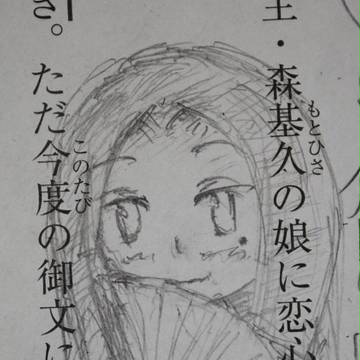 王・森基久の娘に恋
もとひさ
さ。ただ今度の御文に
このたび